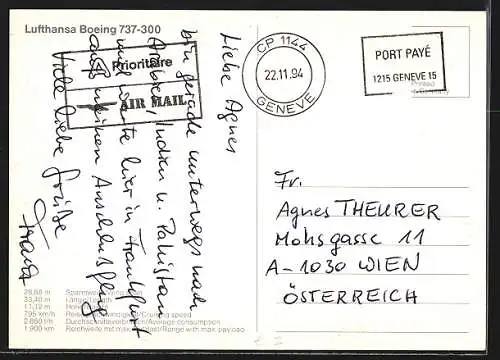 Lufthansa Boeing 737-300
Prioritaire
AIR MAIL
CP 1144
22.11.94
GENEVE
PORT PAYÉ
1215 GENEVE 15
Printed
Liebe Agnes
bin gerade unterwegs nach
Arabien, Indien u. Pakistan
und warte hier in Frankfurt
auf meinen Anschlussflug
Viele liebe Grüße
Fr.
Agnes THEURER
Mohsgasse 11
A-1030 WIEN
ÖSTERREICH
28,88 m Spannweite
33,40 m Länge/Length
11,12 m
795 km/h speed
2.850 l/h Durchschnittsverbrauch/Average consumption
1.900 km Reichweite mit max. /Range with max. payload